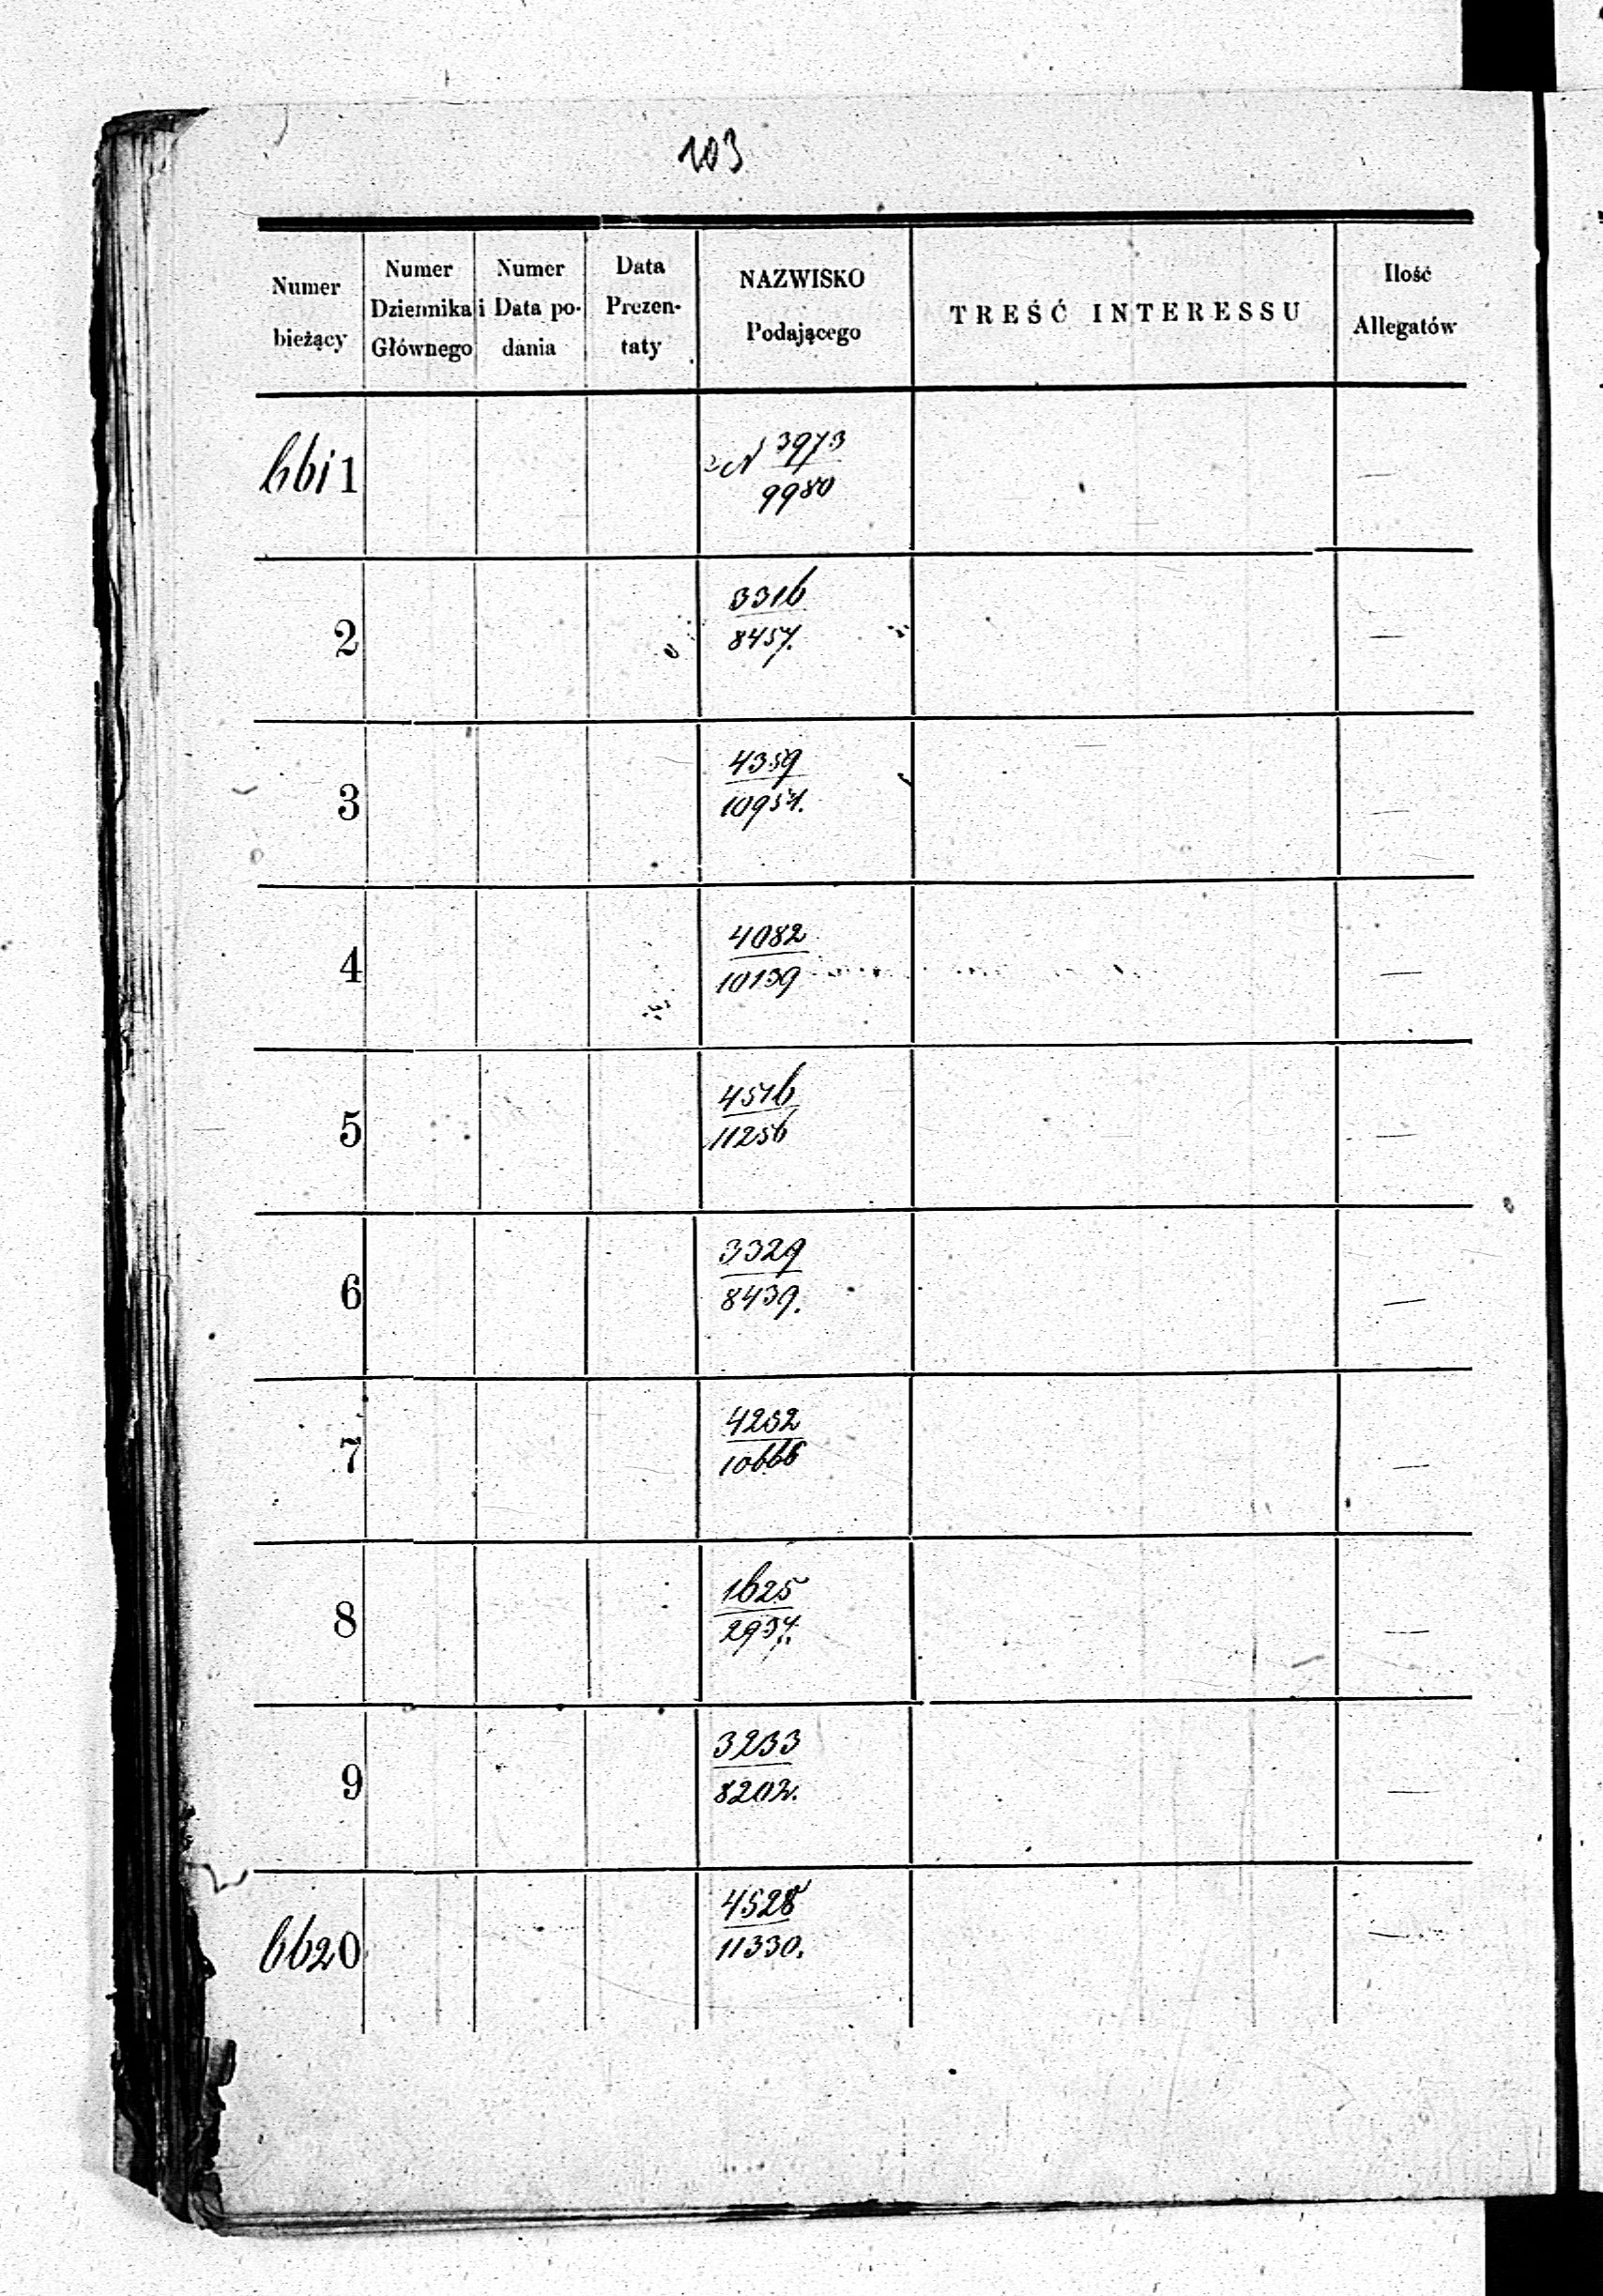 103
Numer bieżący
Numer Dziennika Głównego
Numer i Data podania
Data Prezentaty
NAZWISKO Podającego
TREŚĆ INTERESSU
Ilość Allegatów
6611
N 3973
9980
2
3316
8457.
3
4359
10957.
4
4082
10139
5
4576
11256
6
3329
8439.
7
4252
10666
8
1625
2937.
9
3233
8202.
6620
4528
11330.